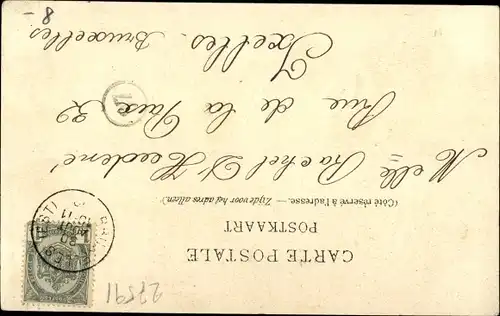 CARTE POSTALE
POSTKAART
(Côté réservé à l'adresse. — Zijde voor het adres alleen.)
Melle Rachel D'Heedene
Rue de la Paix 32
Ixelles. Bruxelles
15
- 8